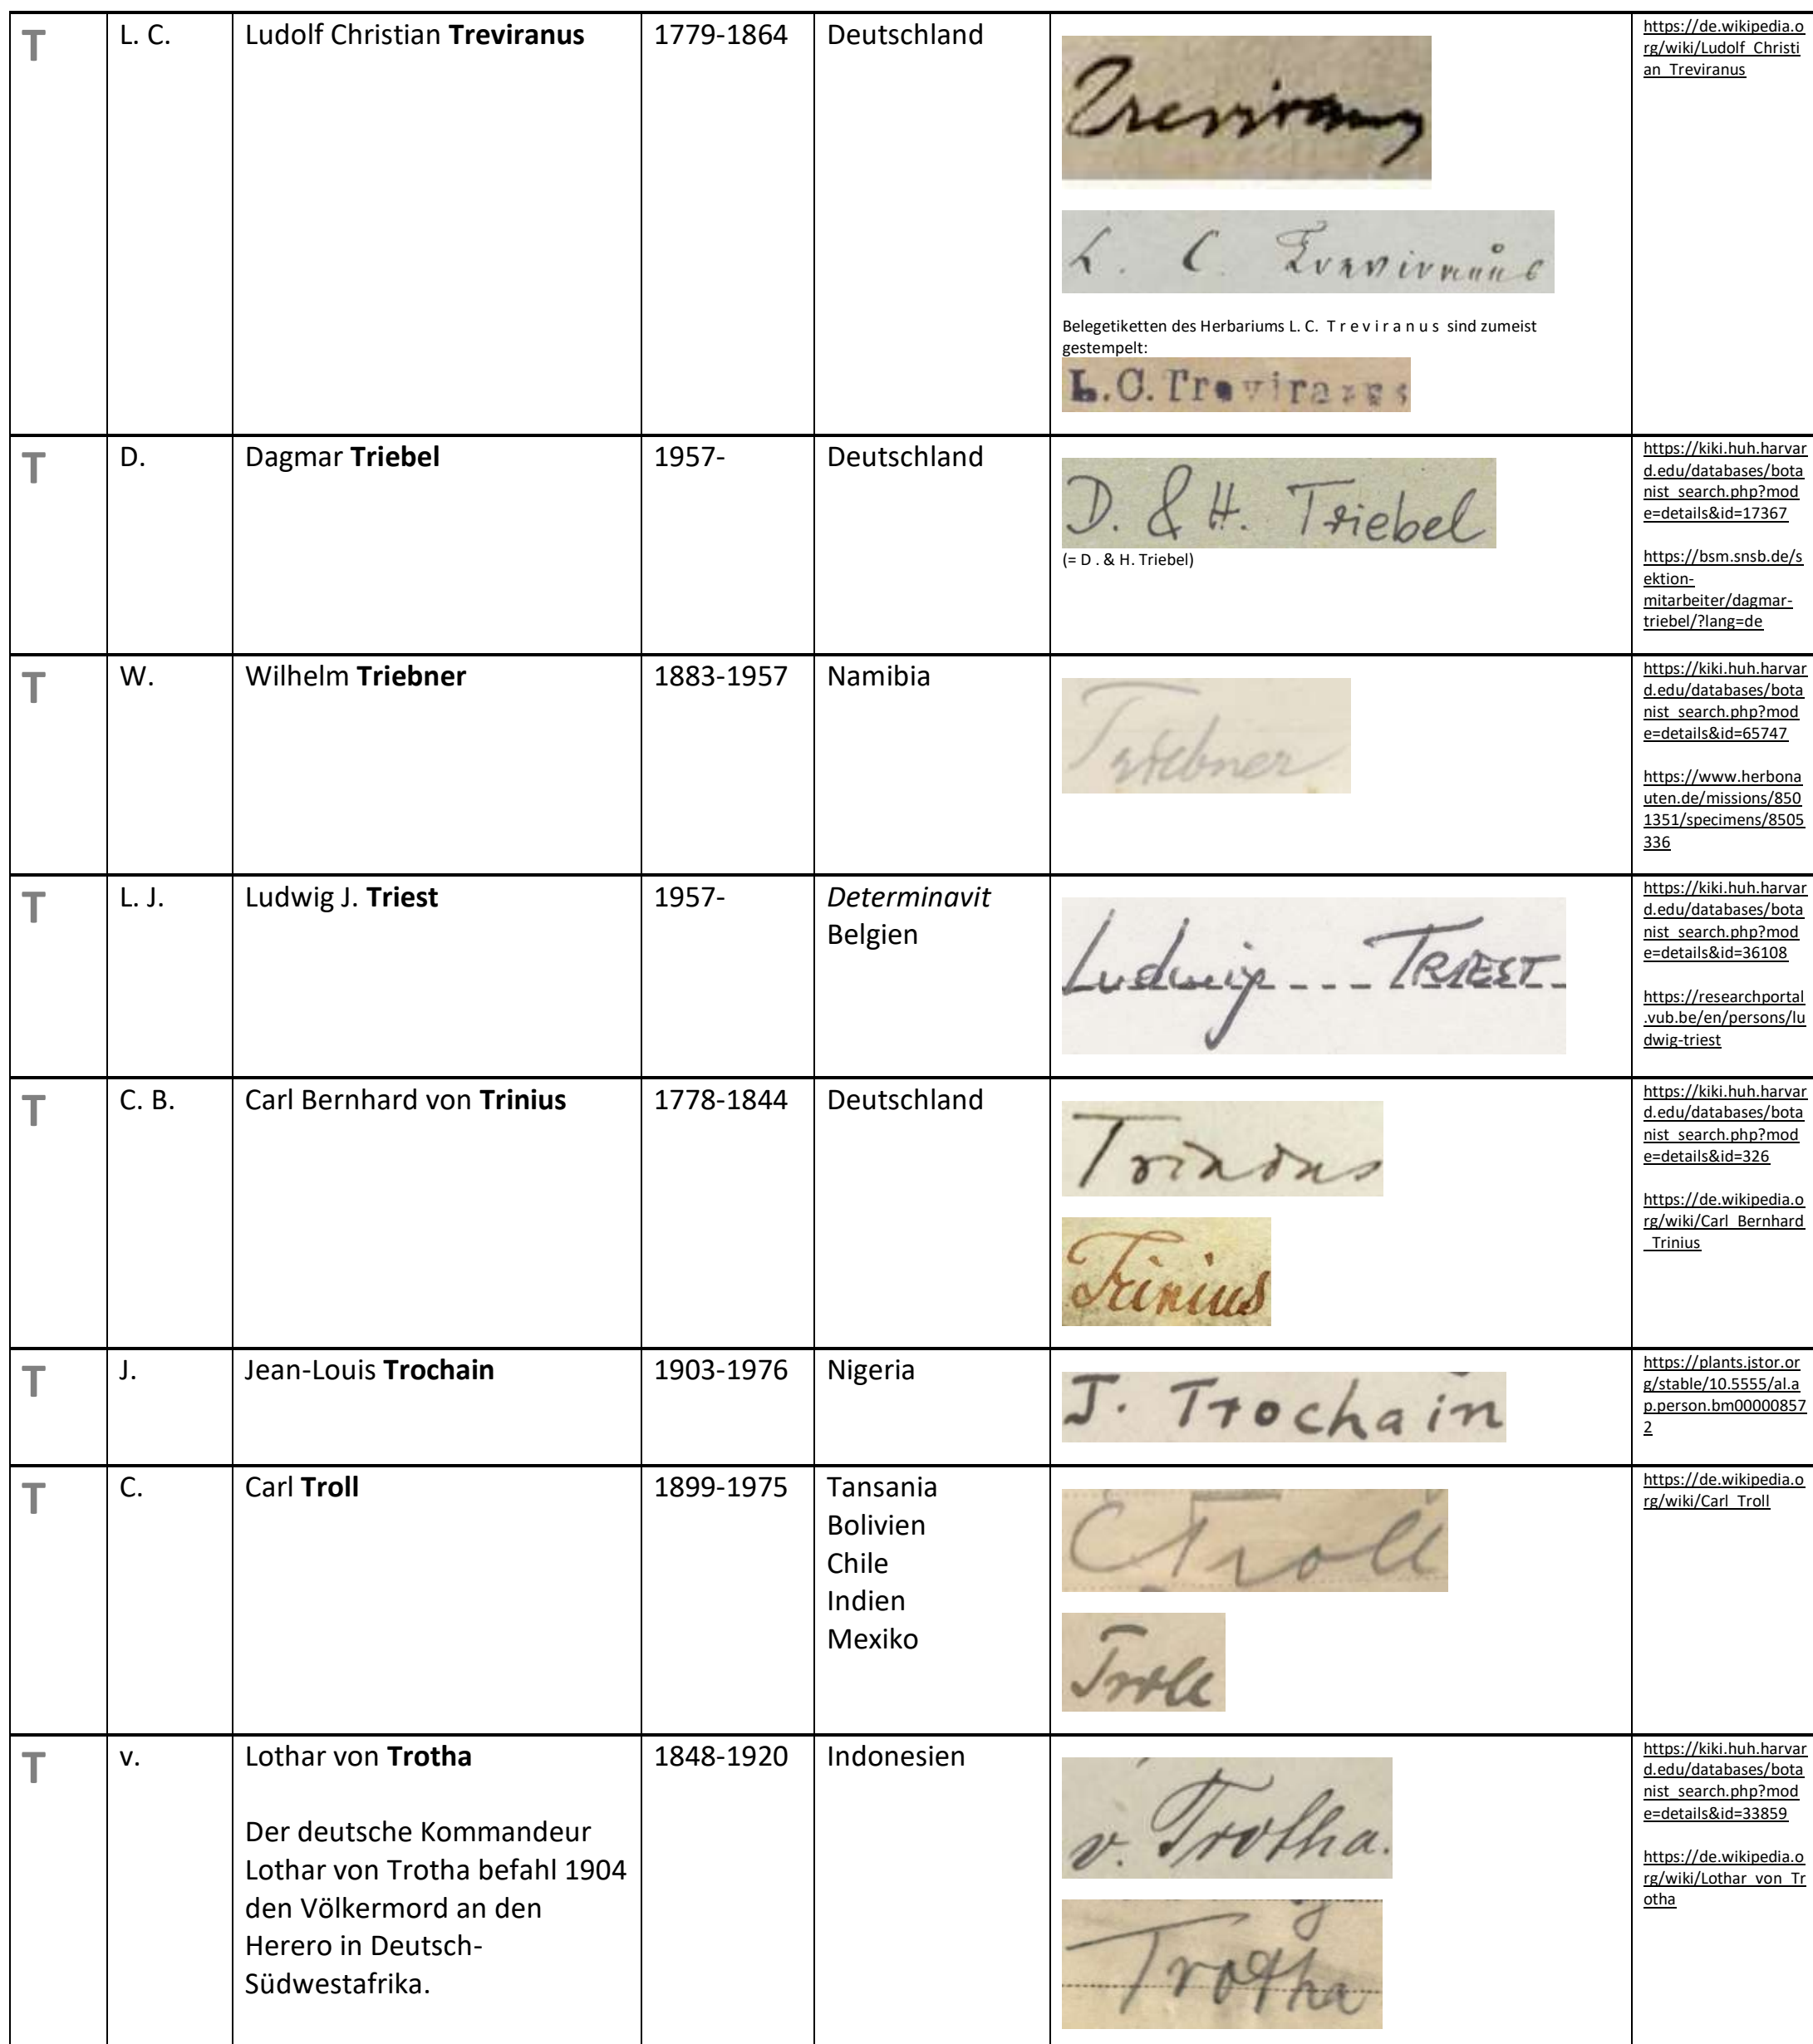 T
L. C.
Ludolf Christian Treviranus
1779-1864
Deutschland
Treviranus
L. C. Treviranus
Belegetiketten des Herbariums L. C. T r e v i r a n u s sind zumeist
gestempelt:
L.C.Treviranus
https://de.wikipedia.o
rg/wiki/Ludolf_Christi
an_Treviranus
T
D.
Dagmar Triebel
1957-
Deutschland
D. & H. Triebel
(= D . & H. Triebel)
https://kiki.huh.harvar
d.edu/databases/bota
nist_search.php?mod
e=details&id=17367
https://bsm.snsb.de/s
ektion-
mitarbeiter/dagmar-
triebel/?lang=de
T
W.
Wilhelm Triebner
1883-1957
Namibia
Triebner
https://kiki.huh.harvar
d.edu/databases/bota
nist_search.php?mod
e=details&id=65747
https://www.herbona
uten.de/missions/850
1351/specimens/8505
336
T
L. J.
Ludwig J. Triest
1957-
Determinavit
Belgien
Ludwig TRIEST
https://kiki.huh.harvar
d.edu/databases/bota
nist_search.php?mod
e=details&id=36108
https://researchportal
.vub.be/en/persons/lu
dwig-triest
T
C. B.
Carl Bernhard von Trinius
1778-1844
Deutschland
Trinius
Trinius
https://kiki.huh.harvar
d.edu/databases/bota
nist_search.php?mod
e=details&id=326
https://de.wikipedia.o
rg/wiki/Carl_Bernhard
_Trinius
T
J.
Jean-Louis Trochain
1903-1976
Nigeria
J. Trochain
https://plants.jstor.or
g/stable/10.5555/al.a
p.person.bm00000857
2
T
C.
Carl Troll
1899-1975
Tansania
Bolivien
Chile
Indien
Mexiko
C Troll
Troll
https://de.wikipedia.o
rg/wiki/Carl_Troll
T
v.
Lothar von Trotha
1848-1920
Indonesien
Der deutsche Kommandeur
Lothar von Trotha befahl 1904
den Völkermord an den
Herero in Deutsch-
Südwestafrika.
v. Trotha.
Trotha
https://kiki.huh.harvar
d.edu/databases/bota
nist_search.php?mod
e=details&id=33859
https://de.wikipedia.o
rg/wiki/Lothar_von_Tr
otha